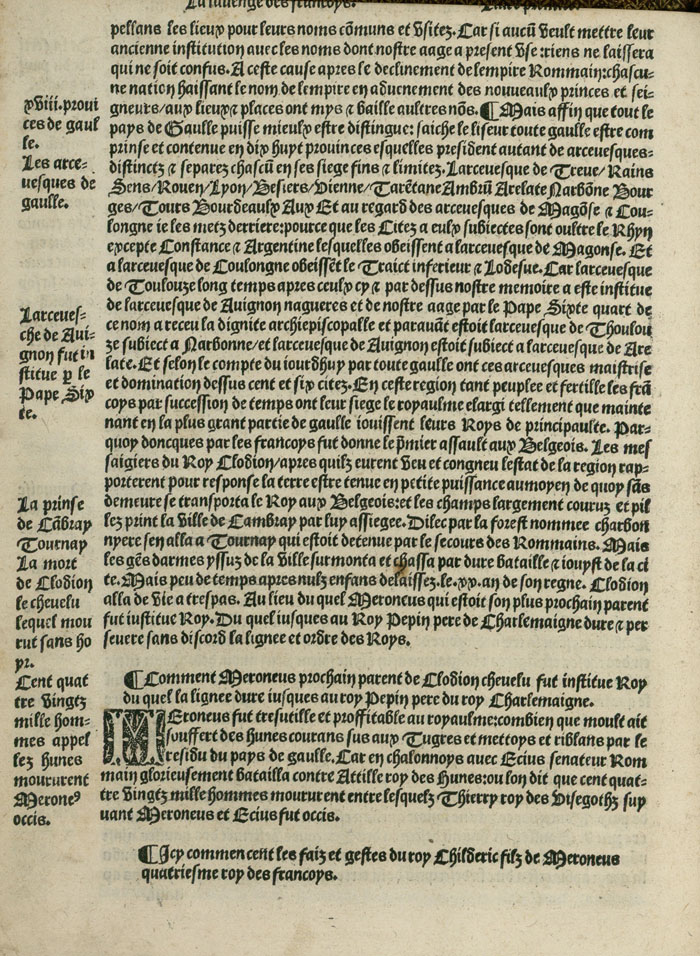 pellans les lieux pour leurs noms cõmuns et vsitez. Car si aucũ veult mettre leur
ancienne institution auec les noms dont nostre aage a present vse: riens ne laissera
qui ne soit confus. A ceste cause apres le declinement de lempire Rommain: chascu-
ne nation haissant le nom de lempire en aduenement des nouueaulx princes et sei-
gneurs/ aux lieux & places ont mys & baille aultres nõs. ¶ Mais affin que tout le
pays de Gaulle puisse mieulx estre distingue: saiche le liseur toute gaulle estre com
prinse et contenue en dix huyt prouinces esquelles president autant de arceuesques-
distinctz & separez chascũ en ses siege fins & limitez. Larceuesque de Treue/ Rains
Sens/ Rouen/ Lyon/ Besiers/ Vienne/ Tarẽtane Ambrũ Arelate Narbõne Bour
ges/ Tours Bourdeaulx Aux Et au regard des arceuesques de Magõse & Cou-
longne ie les metz derriere: pource que les Citez a eulx subiectes sont oultre le Rhyn
excepte Constance & Argentine lesquelles obeissent a larceuesque de Magonse. Et
a larceuesque de Coulongne obeissẽt le Traict inferieur & Lodesue. Car larceuesque
de Toulouze long temps apres ceulx cy & par dessus nostre memoire a este institue
de larceuesque de Auignon nagueres et de nostre aage par le Pape Sixte quart de
ce nom a receu la dignite archiepiscopalle et parauãt estoit larceuesque de Thoulou
ze subiect a Narbonne/ et larceuesque de Auignon estoit subiect a larceuesque de Are
late. Et selon le compte du iourdhuy par toute gaulle ont ces arceuesques maistrise
et domination dessus cent et six citez. En ceste region tant peuplee et fertille les frã
coys par succession de temps ont leur siege le royaulme elargi tellement que mainte
nant en la plus grant partie de gaulle iouissent leurs Roys de principaulte. Par-
quoy doncques par les francoys fut donne le p̃mier assault aux Belgeois. Les mes
saigiers du Roy Clodion/ apres quilz eurent veu et congneu lestat de la region rap-
porterent pour response la terre estre tenue en petite puissance au moyen de quoy sãs
demeure se transporta le Roy aux Belgeois: et les champs largement couruz et pil
lez print la ville de Cambray par luy assiegee. Dilec par la forest nommee charbon
nyere sen alla a Tournay qui estoit detenue par le secours des Rommains. Mais
les gẽs darmes yssuz de la ville surmonta et chassa par dure bataille & iouyst de la ci
te. Mais peu de temps apres nulz enfans delaissez. le .xx. an de son regne. Clodion
alla de vie a trespas. Au lieu du quel Meroneus qui estoit son plus prochain parent
fut iustitue Roy. Du quel iusques au Roy Pepin pere de Charlemaigne dure & per
seuere sans discord la lignee et ordre des Roys.
xviii. proui
ces de gaul
le.
Les arce-
uesques de
gaulle.
Larceues-
che de Aui-
gnon fut in
stitue p le
Pape Six
te.
La prinse
de Cãbray
Tournay
La mort
de Clodion
le cheuelu
lequel mou
rut sans ho
yr.
Cent quat
tre vingtz
mille hom-
mes appel
lez hunes
moururent
Merone⁹
occis.
¶ Comment Meroneus prochain parent de Clodion cheuelu fut institue Roy
du quel la lignee dure iusques au roy Pepin pere du roy Charlemaigne.
MEroneus fut tresutille et proffitable au royaulme: combien que moult ait
souffert des Hunes courans sus aux Tugres et mettoys et riblans par le
residu du pays de gaulle. Car en chalonnoys auec Ecius senateur Rom
main glorieusement batailla contre Attille roy des Hunes: ou lon dit que cent quat-
tre vingtz mille hommes moururent entre lesquelz Thierry roy des Visegothz suy
uant Meroneus et Ecius fut occis.
¶ Icy commencẽt les faiz et gestes du roy Childeric filz de Meroneus
quatriesme roy des francoys.